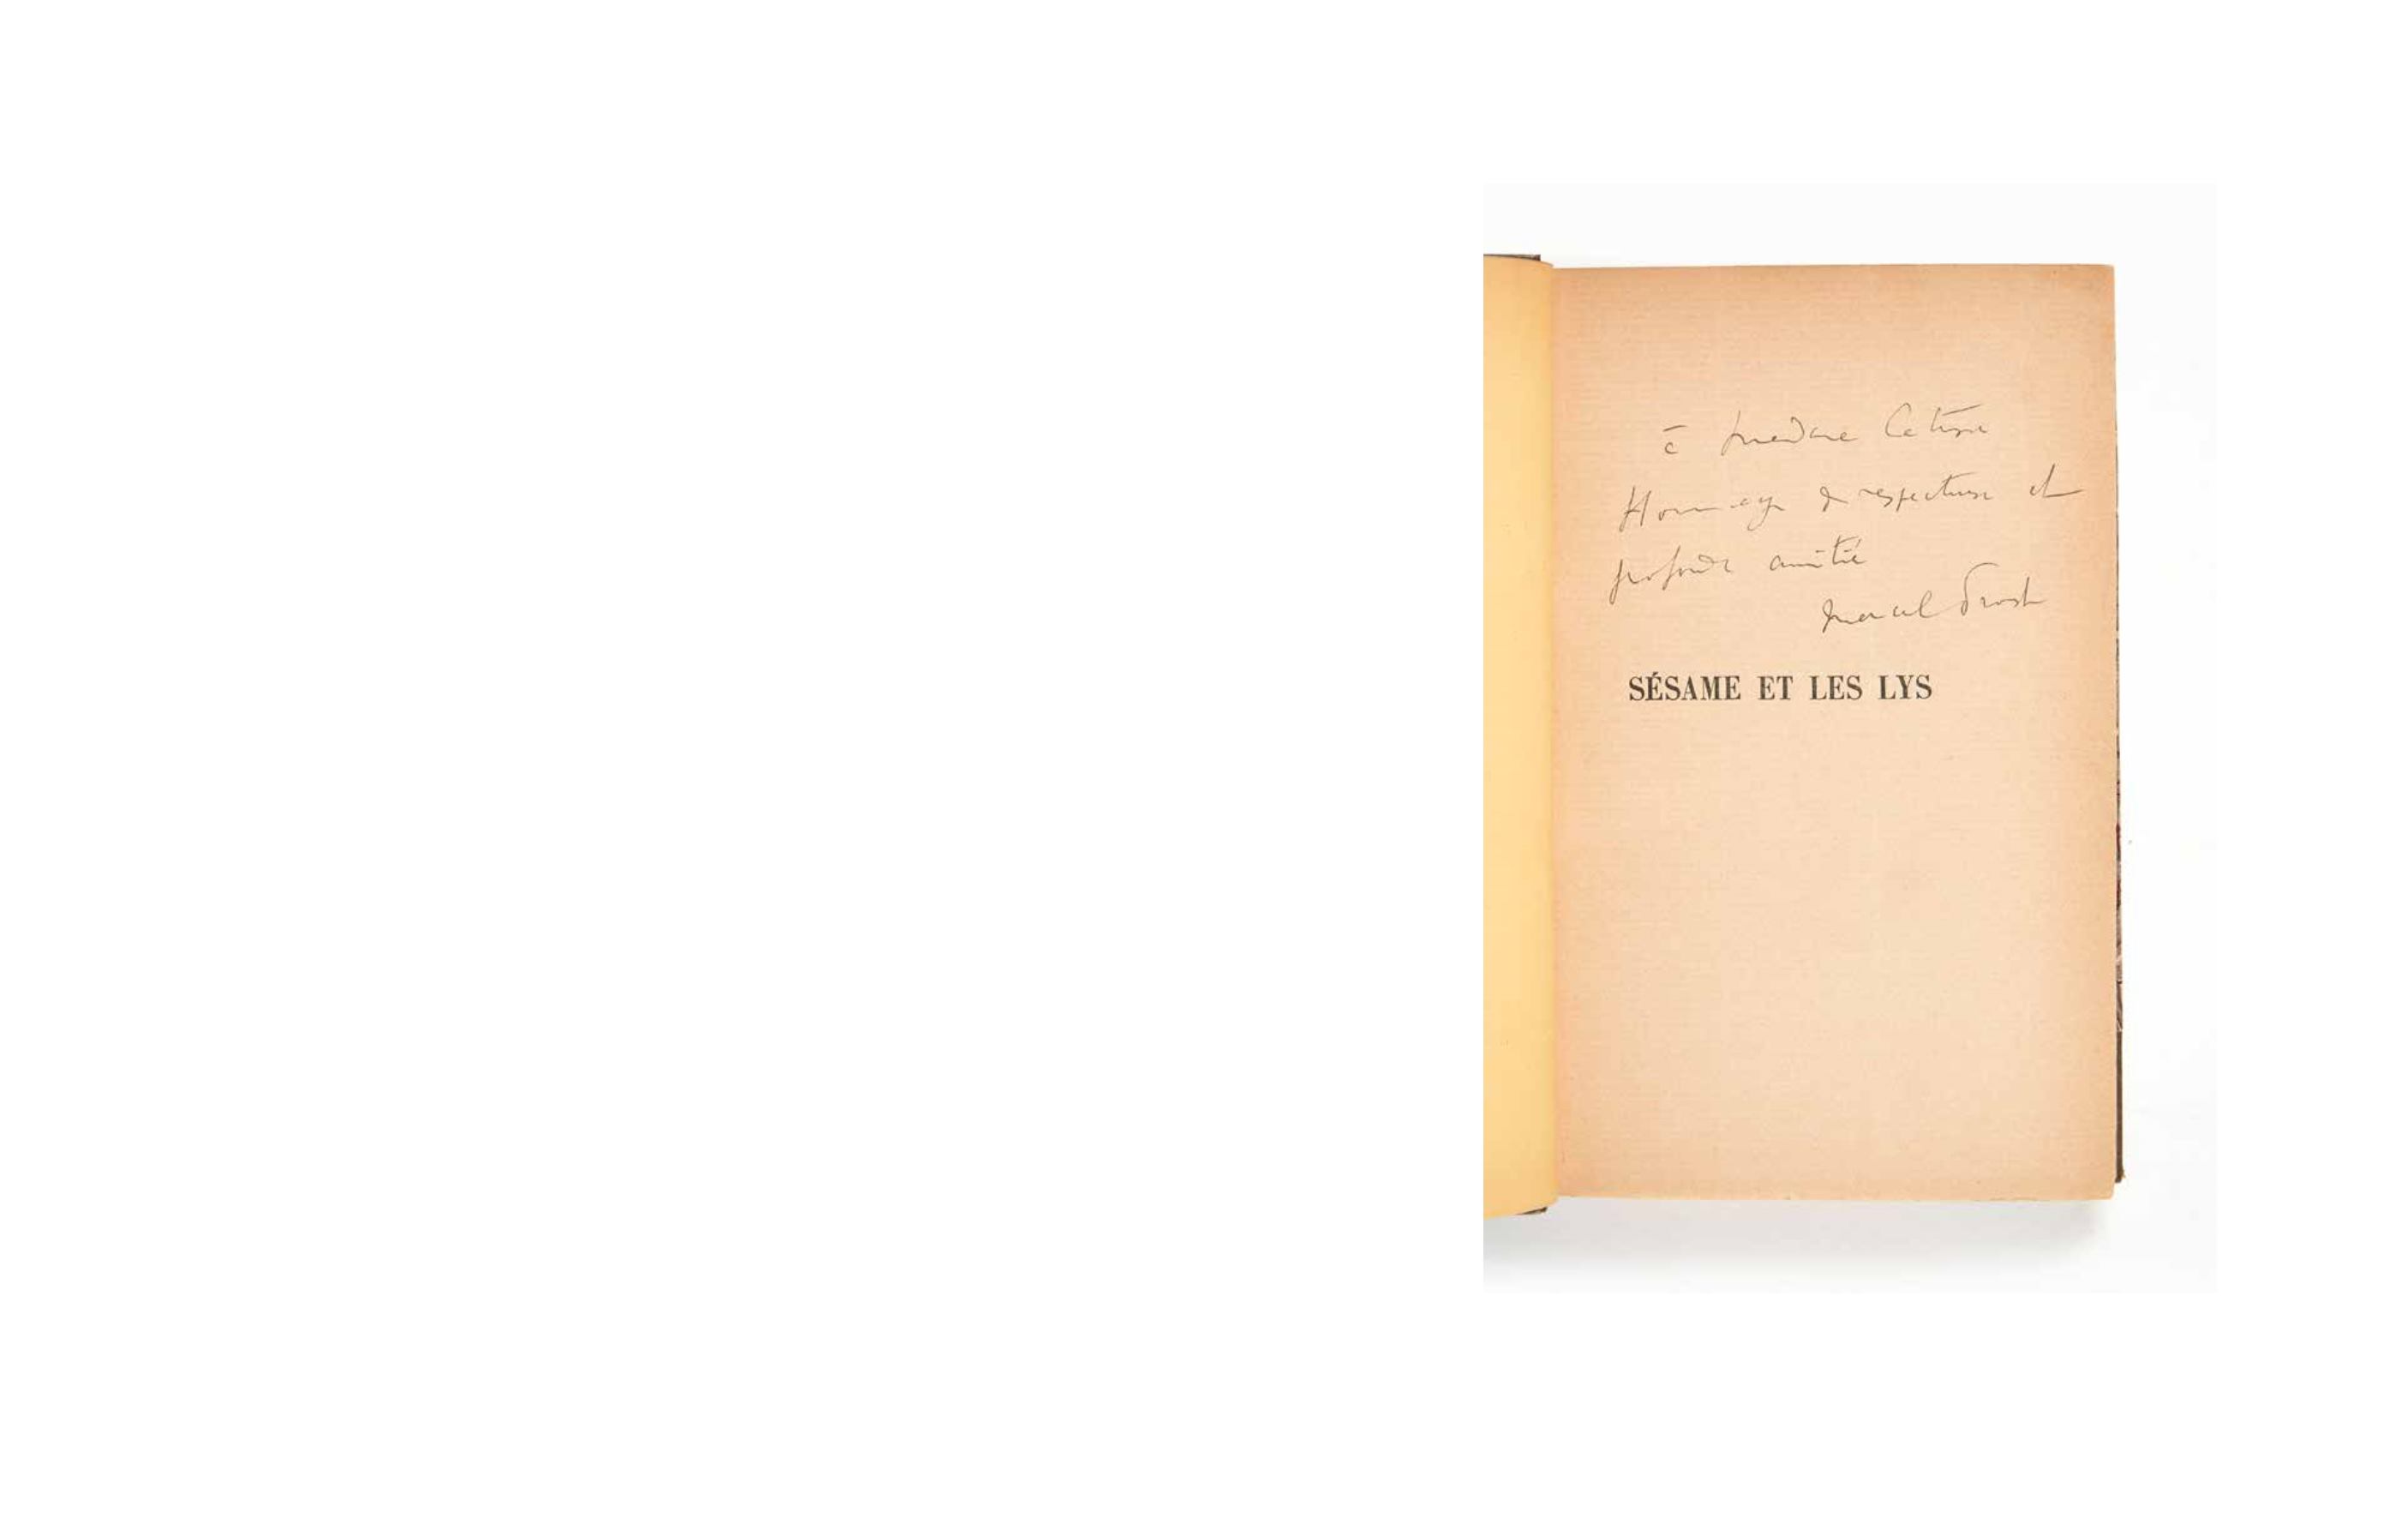 à Madame Catusse
Hommage de respectueuse et
profonde amitié
Marcel Proust
SÉSAME ET LES LYS